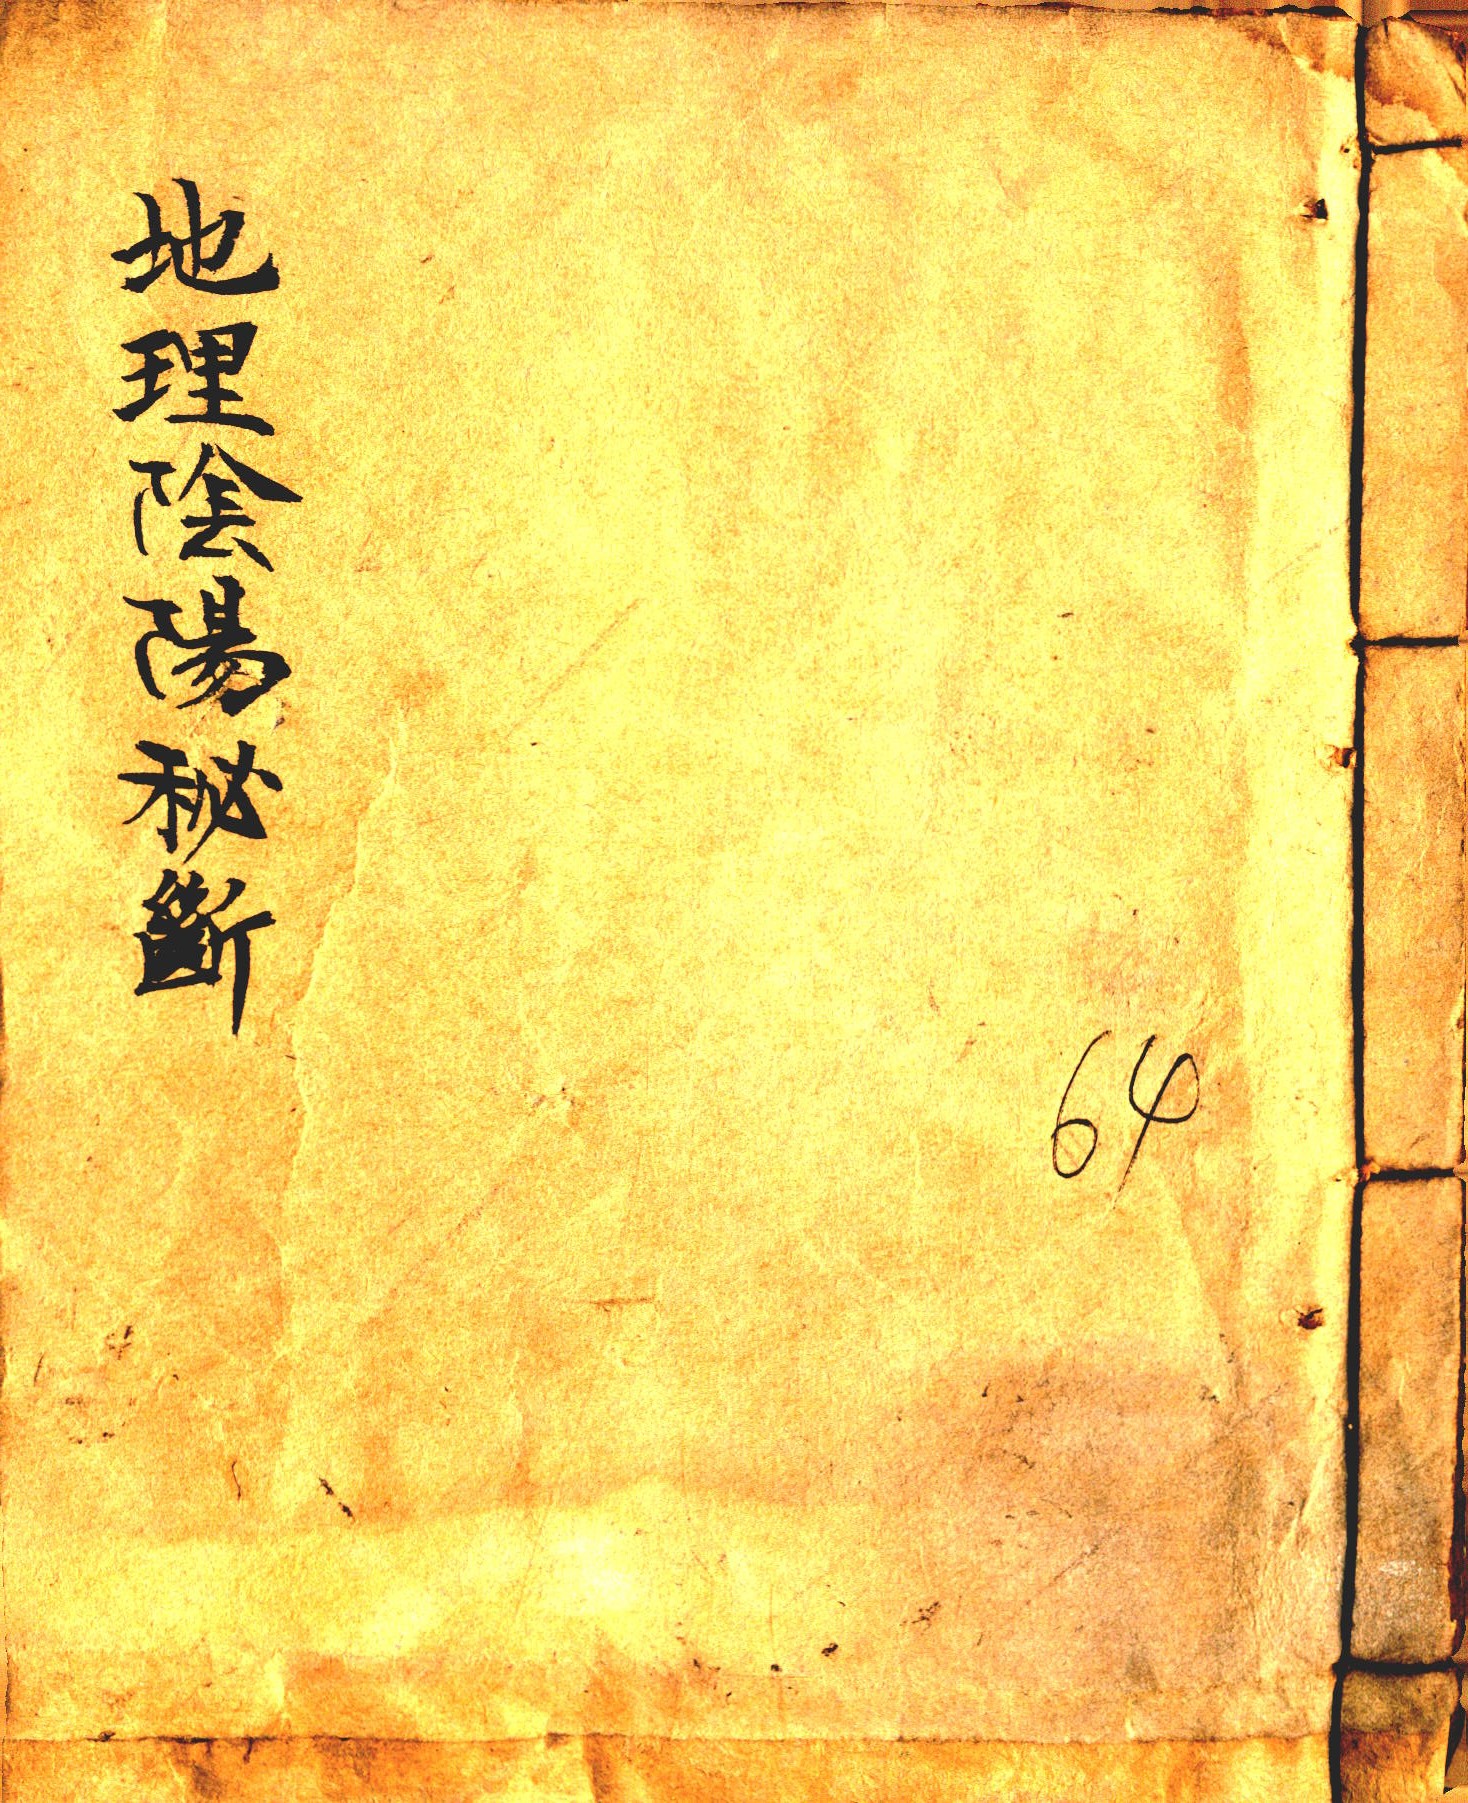 地理陰陽秘斷
64